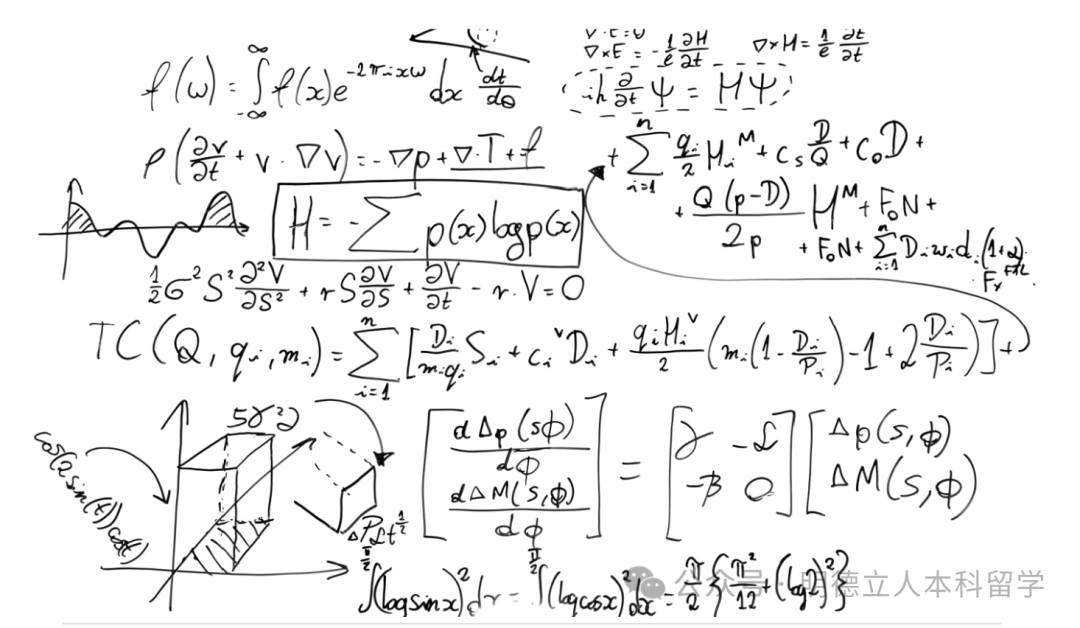 ∇·E = 0
∇×E = -1/c ∂H/∂t    ∇×H = 1/c ∂E/∂t
f(ω) = ∫_{-∞}^{∞} f(x)e^{-2πixω} dx    dt/dθ
iħ ∂/∂t Ψ = HΨ
ρ(∂v/∂t + v · ∇v) = -∇p + ∇·T + f
+ Σ_{i=1}^{n} q_i/2 H_i^M + c_s D/Q + c_0 D +
+ Q(p-D)/2p H^M + F_0 N +
H = -Σ p(x) log p(x)
+ F_0 N + Σ_{i=1}^{n} D_i w_i d_i (1+α)
1/2 σ² S² ∂²V/∂S² + r S ∂V/∂S + ∂V/∂t - r · V = 0
TC(Q, q_i, m_i) = Σ_{i=1}^{n} [D_i/(m_i q_i) S_i + c_i^v D_i + q_i H_i^v/2 (m_i(1 - D_i/P_i) - 1 + 2 D_i/P_i)] +
[d Δp(sϕ)/dϕ ; d ΔM(s,ϕ)/dϕ] = [γ -L ; -β 0] [Δp(s,ϕ) ; ΔM(s,ϕ)]
∫^{π/2} (log sin x)² dx = ∫^{π/2} (log cos x)² dx = π/2 {π²/12 + (log 2)²}
公众号 · 明德立人本科留学